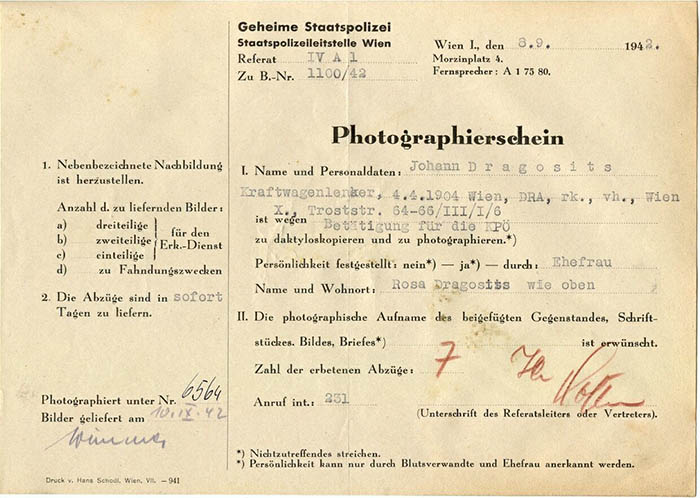 Geheime Staatspolizei
Staatspolizeileitstelle Wien
Referat IV A 1
Zu B.-Nr. 1100/42
Wien I., den 8.9. 1942.
Morzinplatz 4.
Fernsprecher: A 1 75 80.
Photographierschein
1. Nebenbezeichnete Nachbildung
ist herzustellen.
Anzahl d. zu liefernden Bilder:
a) dreiteilige
b) zweiteilige
c) einteilige
für den
Erk.-Dienst
d) zu Fahndungszwecken
2. Die Abzüge sind in sofort
Tagen zu liefern.
Photographiert unter Nr. 6564
Bilder geliefert am 10.IX.42
I. Name und Personaldaten: Johann Dragosits
Kraftwagenlenker, 4.4.1904 Wien, DRA, rk., vh., Wien
X., Troststr. 64-66/III/I/6
ist wegen Betätigung für die KPÖ
zu daktyloskopieren und zu photographieren.*)
Persönlichkeit festgestellt: nein*) — ja*) — durch: Ehefrau
Name und Wohnort: Rosa Dragosits wie oben
II. Die photographische Aufname des beigefügten Gegenstandes, Schrift-
stückes, Bildes, Briefes*) ist erwünscht.
Zahl der erbetenen Abzüge: 7
Anruf int.: 231
(Unterschrift des Referatsleiters oder Vertreters).
*) Nichtzutreffendes streichen.
*) Persönlichkeit kann nur durch Blutsverwandte und Ehefrau anerkannt werden.
Druck v. Hans Schodl, Wien, VII. — 941